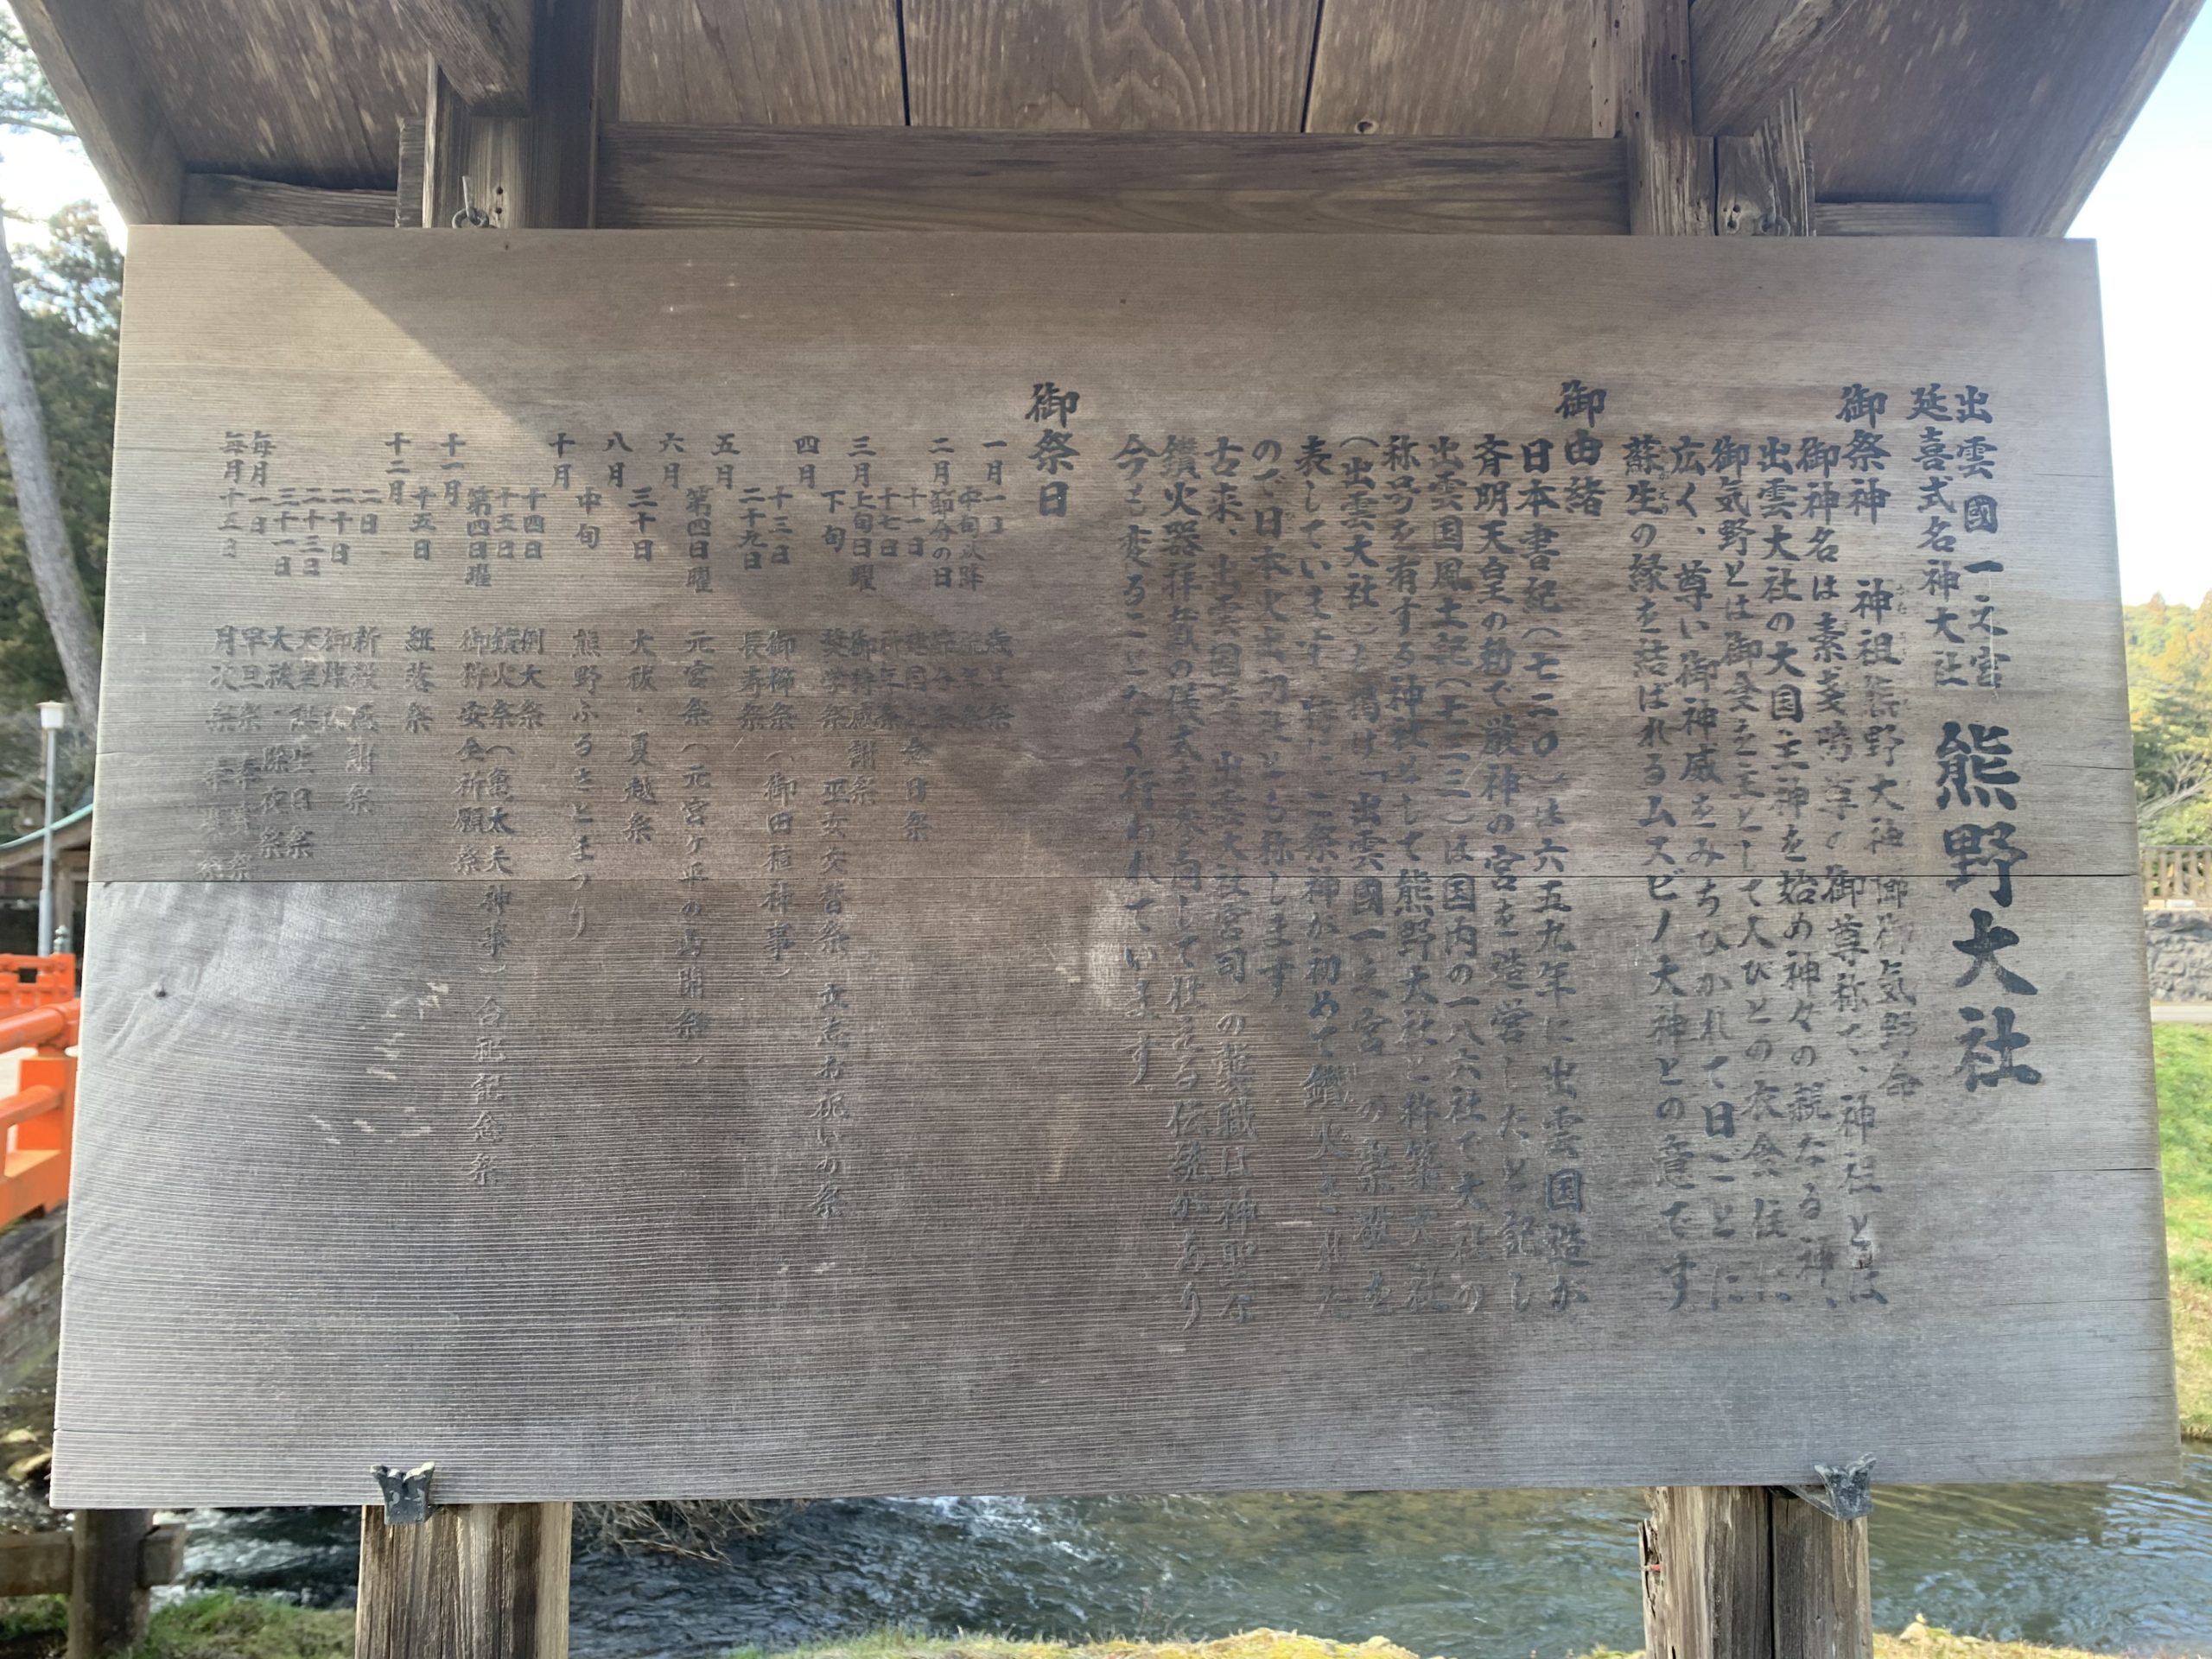 出雲國一之宮
延喜式名神大社
熊野大社
御祭神 神祖熊野大神櫛御気野命
御神名は素戔嗚尊の御尊称で、神祖とは
出雲大社の大国主神を始め神々の親なる神、
御気野とは御食を主として人びとの衣食住に
広く、尊い御神威をみちひかれて日ごとに
蘇生の縁を結ばれるムスビノ大神との意です
御由緒
日本書紀(七二〇)は六五九年に出雲国造が
斉明天皇の勅で厳神の宮を造営したと記し
出雲国風土記(七三三)は国内の一八六社で大社の
称号を有する神社として熊野大社と杵築大社
(出雲大社)を掲げ「出雲國一之宮」の崇敬を
表しています 特に、祭神が初めて鑽火された
ので日本火出初之社とも称します。
古来、出雲国造(出雲大社宮司)の襲職は神聖な
鑽火器拝戴の儀式を本国して仕える伝統があり
今も変ることなく行われています
御祭日
一月一日 歳旦祭
中旬以降
二月節分の日 節分祭
十一日 建国記念日祭
十七日 祈年祭
三月上旬日曜 御狩感謝祭
下旬 奨学祭 巫女交替祭 立志お祝いの祭
四月十三日 御櫛祭(御田植神事)
二十九日 長寿祭
五月第四日曜 元宮祭(元宮ヶ平の山開祭)
六月三十日 大祓・夏越祭
八月中旬 熊野ふるさとまつり
十月十四日 例大祭
十五日 鑽火祭(亀太夫神事)合祀記念祭
第四日曜 御狩安全祈願祭
十一月十五日 紐落祭
十二月二日 新穀感謝祭
二十日 御煤祓
二十三日 天皇誕生日祭
三十一日 大祓・除夜祭
毎月一日 早旦祭
毎月十五日 月次祭